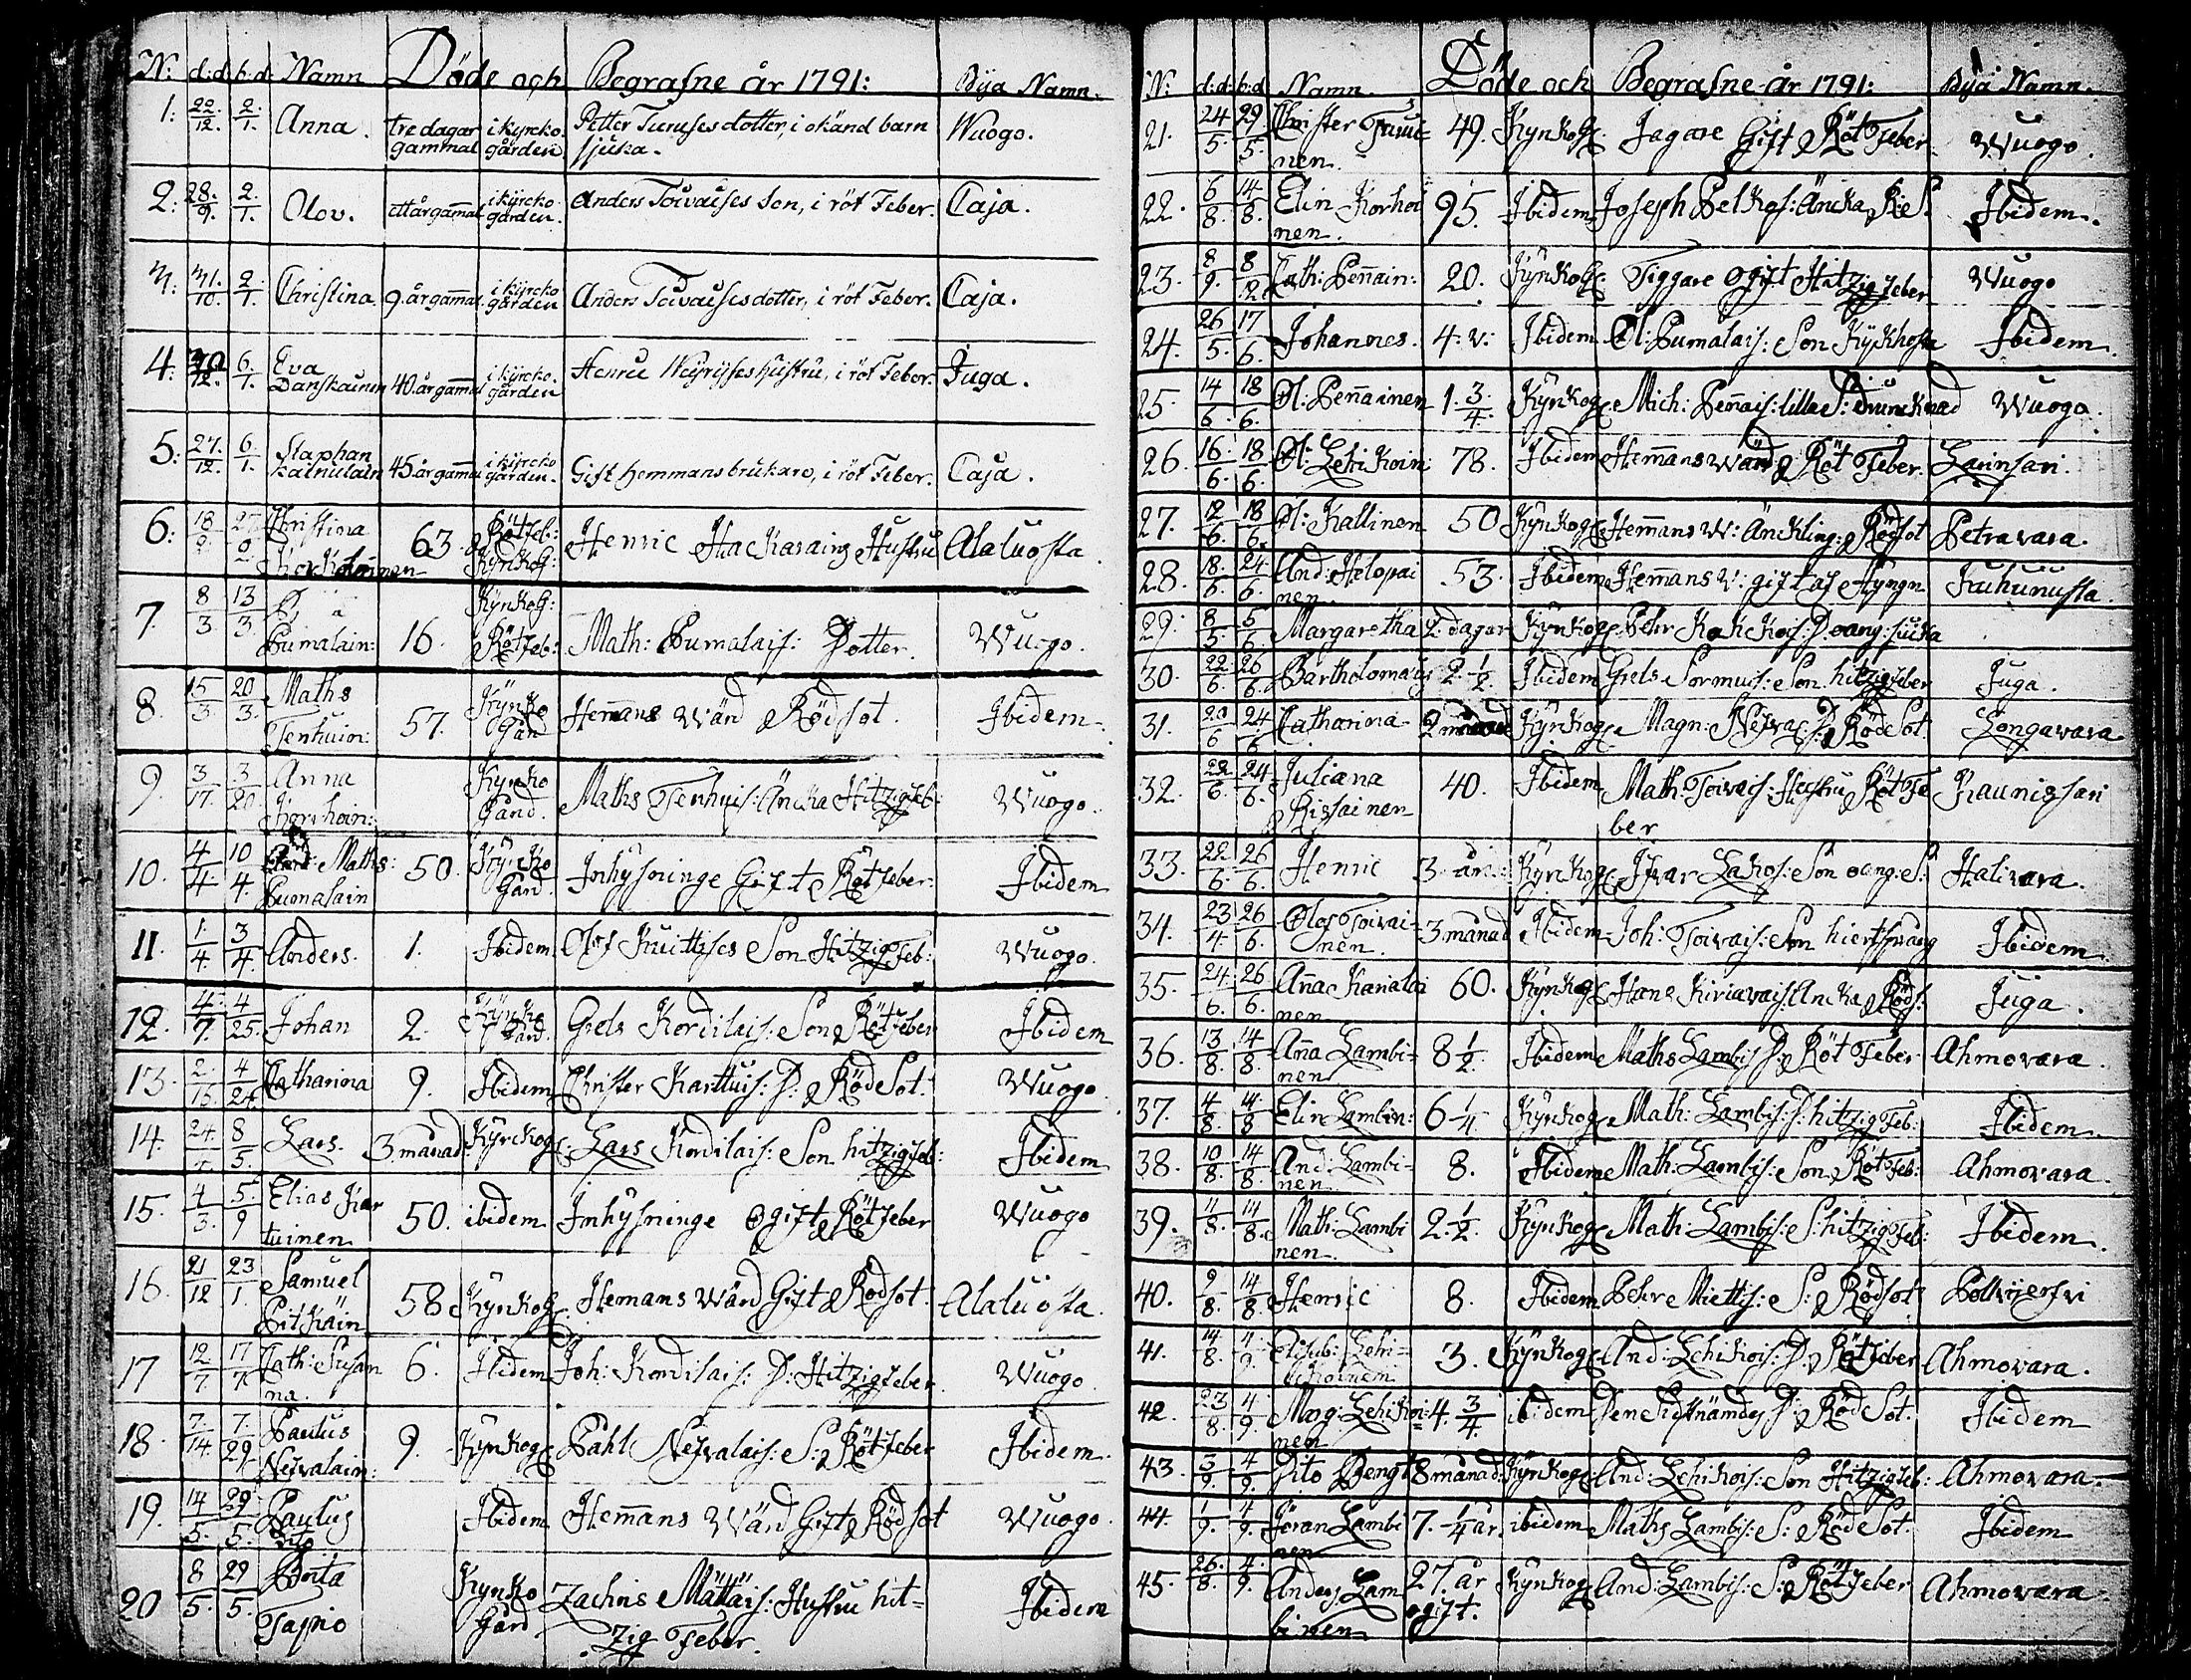 N: d:d: b:d: Namn Döde och Begrafne år 1791: Bya Namn.
1: 22./12. 2./1. Anna. tre dagar gammal i kyrcko gården Petter Turuses dotter, i okänd barn sjuka. Wuogo.
2: 28./9. 2./1. Olov. ett år gammal i kyrcko gården. Anders Toivaises Son, i röt Feber. Caja.
3: 31./10. 2./1. Christina. 9. år gammal. i kyrcko gården Anders Toivaises dotter, i röt Feber. Caja.
4: 12. 6./1. Eva Danskainen 40. år gammal i kyrcko gården Henric hustru, i röt Feber. Juga.
5: 27./12. 6./1. Staphan 45. år gammal i kyrcko gården. Gift Hemmans brukare, i röt Feber. Caja.
6: 18 27 Christina 63. Rötfeb: KyrkoG: Henric Hackarains Hustru Alaluosta
7. 8/3. 13/3. Pumalain: 16. KyrkoG: Rötfeb: Math: Pumalais: Dotter. Wuogo.
8. 15/3. 20/3. Maths Tenhuin: 57. Kyrko Gård Hemans Wärd Rödsot. Ibidem.
9. 3/17. 3/20. Anna Korhoin: Kyrko Gård. Maths Tenhuis: Äncka Hitzigfeb: Wuogo.
10. 4/4. 10/4. Maths: Pumalain 50. Kyrko Gård. Inhysninge Gift Rötfeber. Ibidem
11. 1./4. 3/4. Anders. 1. Ibidem. Olof Kuittises Son Hitzigfeb: Wuogo.
12. 4./7. 4/25. Johan 2. Kyrko Gård. Grels Kordilais: Son Rötfeber Ibidem
13. 2./15. 4/24. Catharina 9. Ibidem Christer Karttuis: D: RödSot. Wuogo.
14. 24. 8/5. Lars. 3. månad: Kyrckog: Lars Kordilais: Son hitzigfeb: Ibidem
15. 4/3. 5./9 Elias Kartuinen 50. ibidem Inhysninge Ogift Rötfeber Wuogo
16. 21/12 23/1. Samuel Pitkäin 58 KyrkoG: Hemans Wärd Gift Rödsot. Alaluosta.
17 12/7. 17/7. Cath: Susanna. 6. Ibidem Joh: Kordilais: D: Hitzigfeber Wuogo.
18. 7./14. 7./29. Paulus Nefvalain: 9. Kyrkog: Påhl Nefvalais: S: Rötfeber Ibidem.
19. 14/5. 29/5. Paulus Dito Ibidem Hemmans Wärd Gift Rödsot Wuogo.
20 8/5. 29/5. Brita Tapio Kyrko Gård Zachris Mättäis: Hustru hitzig Feber. Ibidem
N: d:d: b:d Namn. Döde och Begrafne år 1791: Bya Namn.
21. 24/5. 29/5. Christer nen. 49. KyrkoG: Jagare Gift Röt Feber Wuogo.
22. 6/8. 14/8. Elin Korhoinen. 95. Ibidem Joseph Pelkos: Äncka Ibidem.
23. 8/9. 8 Cath: Pennain: 20. KyrkoG: Tiggare Ogift Hitzigfeber Wuogo
24. 26/5. 17/6. Johannes. 4: v: Ibidem Ol: Pumalais: Son Kyckhosta Ibidem.
25. 14/6. 18/6. Ol: Pennainen 1. 3/4. Kyrkog: Mich: Pennais: lilla S: Drunknad Wuogo.
26. 16./6. 18/6. Ol: Lehikoin: 78. Ibidem Hemans Wärd Röt Feber. Larinsari.
27. 12/6. 18/6. Ol: Kallinen 50 Kyrkog: Hemans W: Änckling: Rödsot Petravara.
28. 18./6. 24./6. And: Helopainen 53. Ibidem Hemans W: gift af Hyngn
29. 8/5. 5/6. Margaretha 2. dagar Kyrkog: Pehr Kokkois: D oang: siuka
30. 22/6. 26/6. Bartholomæus 2. 1/2. Ibidem Grels Sormuis: Son hitzigfeber Juga.
31. 20/6 24/6 Catharina 2 månad Kyrkog: Magn: D: RödSot. Songavara
32. 22/6. 24/6. Juliana Rissainen 40. Ibidem Math: Toivais: Hustru Röt Feber Kaunissari
33. 22/6. 26/6. Henric 3. år: Kyrkog: Ifvar Lakos: Son oang: S: Halivara.
34. 23/4. 26/6. Olof Toivainen. 3 månad Ibidem Joh: Toivais: Son hiertsprång Ibidem.
35. 24./6. 26/6. Anna Kanalainen 60. Kyrkog: Hans Kiriavais: Ancka Röds: Juga.
36. 13/8. 14/8. Anna Lambinen 8 1/2. Ibidem Maths Lambis: D: Röt Feber Ahmovara.
37. 4/8. 4./8 Elin Lambin: 6 1/4 Kyrkog: Math: Lambis: D: hitzigfeb: Ibidem.
38. 10/8. 14/8. And: Lambinen 8. Ibidem Math: Lambis: Son Rötfeb: Ahmovara.
39. 11/8. 14/8. Math: Lambinen. 2. 1/2. Kyrkog: Math: Lambis: S: hitzigfeb: Ibidem.
40. 9/8. 14/8. Henric 8. Ibidem Pehr Miettis: S: Rödsot Polvijerfvi
41. 14./8. 4/9. Elisab: Lehikoinen 3. Kyrkog: And: Lehikois: D: Rötfeber Ahmovara.
42. 23/8. 4/9. Marg: Lehikoinen 4. 3/4. ibidem Den Sidstnämdes D: RödSot. Ibidem
43. 3/9. 4/9. Dito Bengt 8 månad: Kyrkog: And: Lehikois: Son Hitzigfeb: Ahmovara.
44. 1/9. 4/9. Jöran Lambinen 7. 1/4 år ibidem Maths Lambis: S: RödSot. Ibidem
45. 26./8. 4./9. Anders Lambinen 27. år ogift. Kyrkog: And: Lambis: S: Rötfeber Ahmovara.